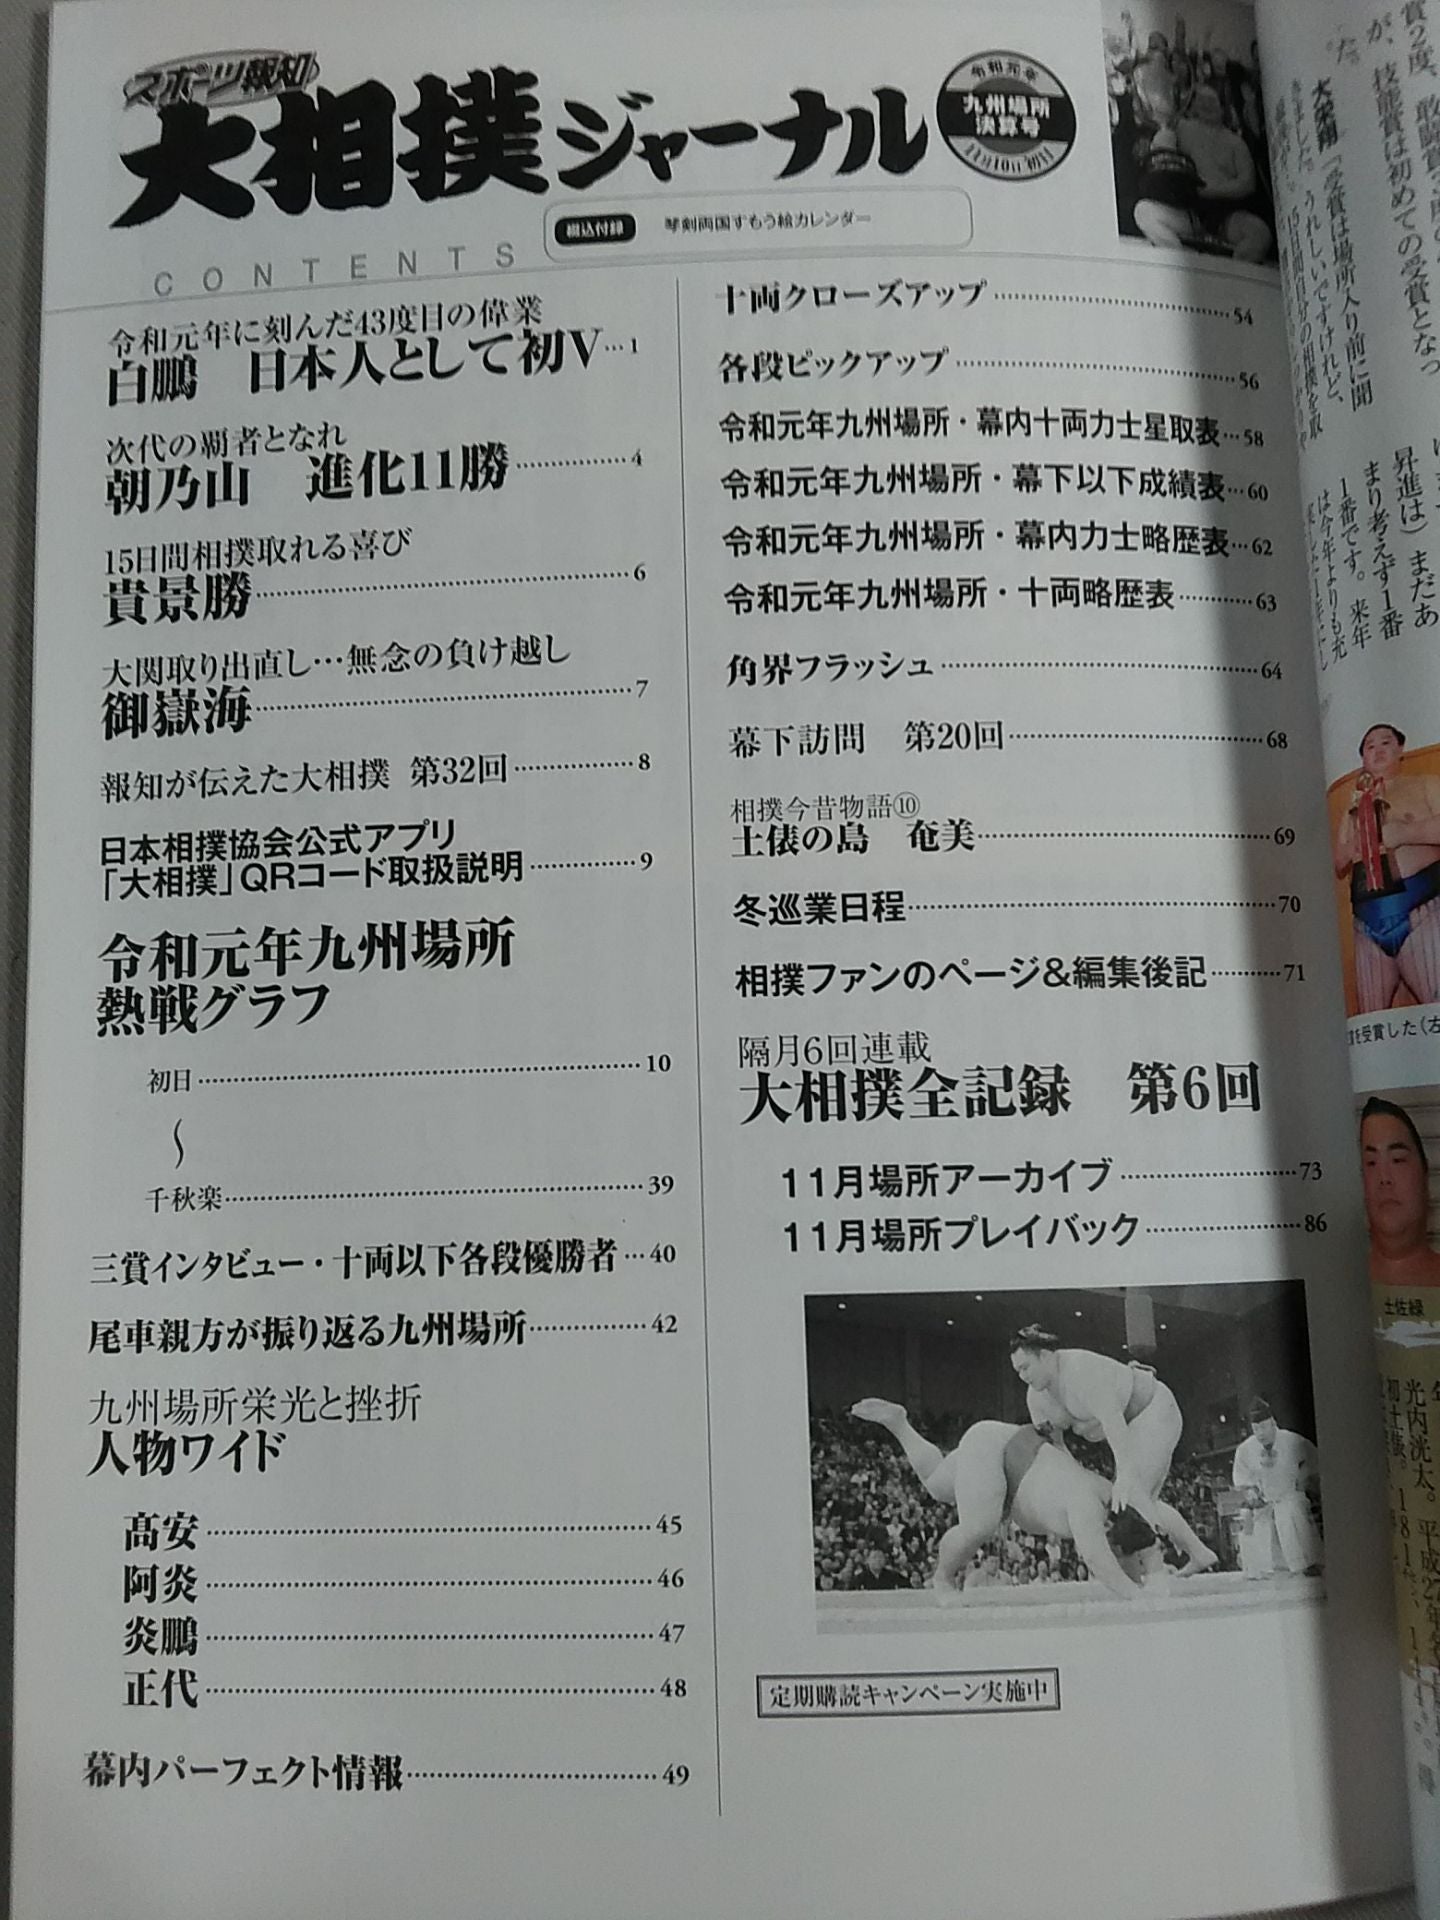 スポーツ報知
大相撲ジャーナル
令和元年
九州場所
決算号
11月10日初日
綴込付録 琴剣両国すもう絵カレンダー
CONTENTS
令和元年に刻んだ43度目の偉業
白鵬 日本人として初V…1
次代の覇者となれ
朝乃山 進化11勝…4
15日間相撲取れる喜び
貴景勝…6
大関取り出直し…無念の負け越し
御嶽海…7
報知が伝えた大相撲 第32回…8
日本相撲協会公式アプリ
「大相撲」QRコード取扱説明…9
令和元年九州場所
熱戦グラフ
初日…10
〜
千秋楽…39
三賞インタビュー・十両以下各段優勝者…40
尾車親方が振り返る九州場所…42
九州場所栄光と挫折
人物ワイド
髙安…45
阿炎…46
炎鵬…47
正代…48
幕内パーフェクト情報…49
十両クローズアップ…54
各段ピックアップ…56
令和元年九州場所・幕内十両力士星取表…58
令和元年九州場所・幕下以下成績表…60
令和元年九州場所・幕内力士略歴表…62
令和元年九州場所・十両略歴表…63
角界フラッシュ…64
幕下訪問 第20回…68
相撲今昔物語⑩
土俵の島 奄美…69
冬巡業日程…70
相撲ファンのページ&編集後記…71
隔月6回連載
大相撲全記録 第6回
11月場所アーカイブ…73
11月場所プレイバック…86
定期購読キャンペーン実施中
が、技能賞は初めての受賞となっ
た。
大栄翔「受賞は場所入り前に聞
きました。うれしいですけれど、
昇進は）まだあ
まり考えず1番
1番です。来年
は今年よりも充
を受賞した（右
土佐緑
光内洸太。平成27年
初土俵。181